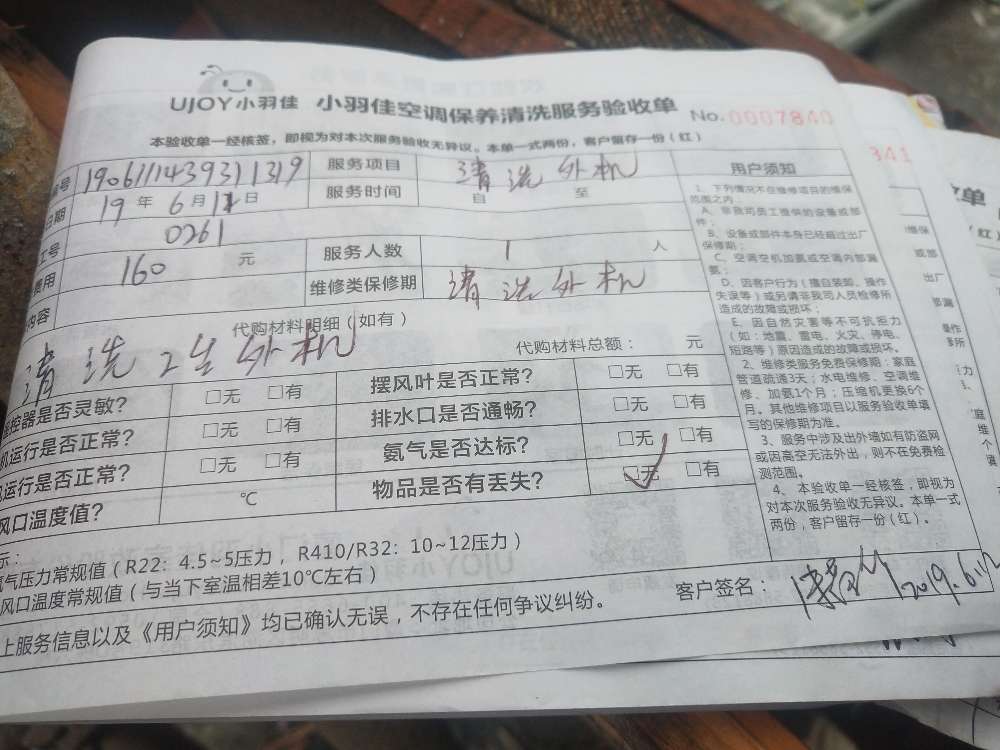 UJOY小羽佳 小羽佳空调保养清洗服务验收单 No.0007840
本验收单一经核签，即视为对本次服务验收无异议。本单一式两份，客户留存一份（红）
号 1906111439311319 服务项目 清洗外机
日期 19年6月12日 服务时间 自 至
工号 0261
费用 160 元 服务人数 1 人
内容 维修类保修期 清洗外机
代购材料明细（如有） 代购材料总额： 元
清洗 外机
控器是否灵敏? □无 □有 摆风叶是否正常? □无 □有
机运行是否正常? □无 □有 排水口是否通畅? □无 □有
运行是否正常? □无 □有 氨气是否达标? □无 □有
风口温度值? ℃ 物品是否有丢失? □无 □有
示：
气压力常规值（R22：4.5~5压力，R410/R32：10~12压力）
风口温度常规值（与当下室温相差10℃左右）
上服务信息以及《用户须知》均已确认无误，不存在任何争议纠纷。
客户签名： 2019.6.12
用户须知
1、下列情况不在维修项目的维保
范围之内：
A、非我司员工提供的设备或部
件；
B、设备或部件本身已经超过出厂
保修期；
C、空调空机加氨或空调内部漏
氨；
D、因客户行为（擅自装卸、操作
失误等）或另请非我司人员检修所
造成的故障或损坏；
E、因自然灾害等不可抗拒力
（如：地震、雷电、火灾、停电、
短路等）原因造成的故障或损坏。
2、维修类服务免费保修期：家庭
管道疏通3天；水电维修、空调维
修、加氨1个月；压缩机更换6个
月。其他维修项目以服务验收单填
写的保修期为准。
3、服务中涉及出外墙如有防盗网
或因高空无法外出，则不在免费检
测范围。
4、本验收单一经核签，即视为
对本次服务验收无异议。本单一式
两份，客户留存一份（红）。
341
收单
（红）